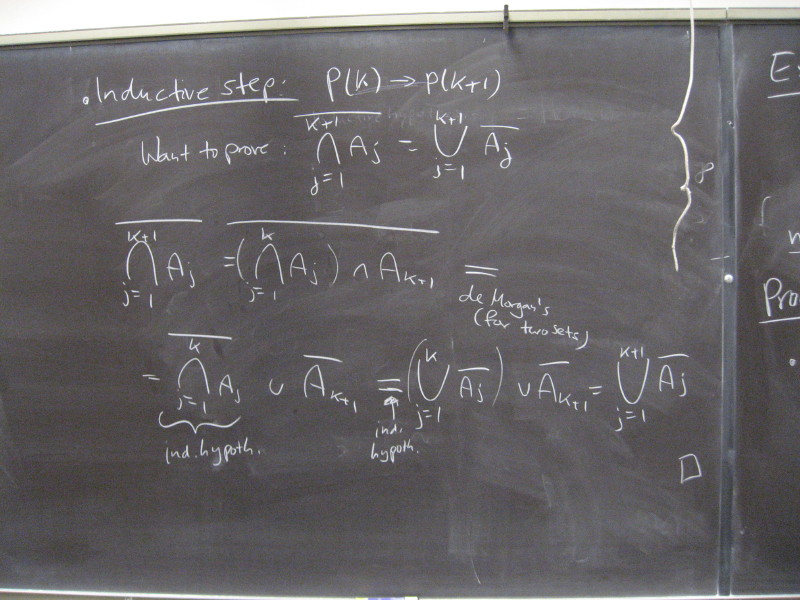 . Inductive step: P(k) → P(k+1)
Want to prove: $\overline{\bigcap_{j=1}^{k+1} A_j} = \bigcup_{j=1}^{k+1} \overline{A_j}$
$\overline{\bigcap_{j=1}^{k+1} A_j} = \overline{\left(\bigcap_{j=1}^{k} A_j\right) \cap A_{k+1}} =$
de Morgan's
(for two sets)
$= \overline{\bigcap_{j=1}^{k} A_j} \cup \overline{A_{k+1}} = \left(\bigcup_{j=1}^{k} \overline{A_j}\right) \cup \overline{A_{k+1}} = \bigcup_{j=1}^{k+1} \overline{A_j}$
ind. hypoth.
ind.
hypoth.
□
Pro